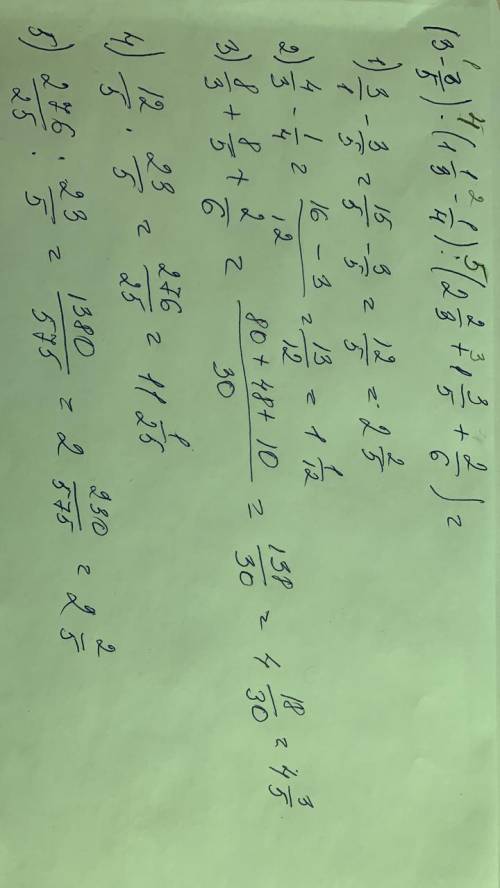 (3 - 3/5) · (1 1/3 - 1/4) : (2 2/3 + 1 3/5 + 2/6) =
1) 3/1 - 3/5 = 15/5 - 3/5 = 12/5 = 2 2/5
2) 4/3 - 1/4 = 16 - 3/12 = 13/12 = 1 1/12
3) 8/3 + 8/5 + 2/6 = 80 + 48 + 10/30 = 138/30 = 4 18/30 = 4 3/5
4) 12/5 · 23/5 = 276/25 = 11 1/25
5) 276/25 : 23/5 = 1380/575 = 2 230/575 = 2 2/5